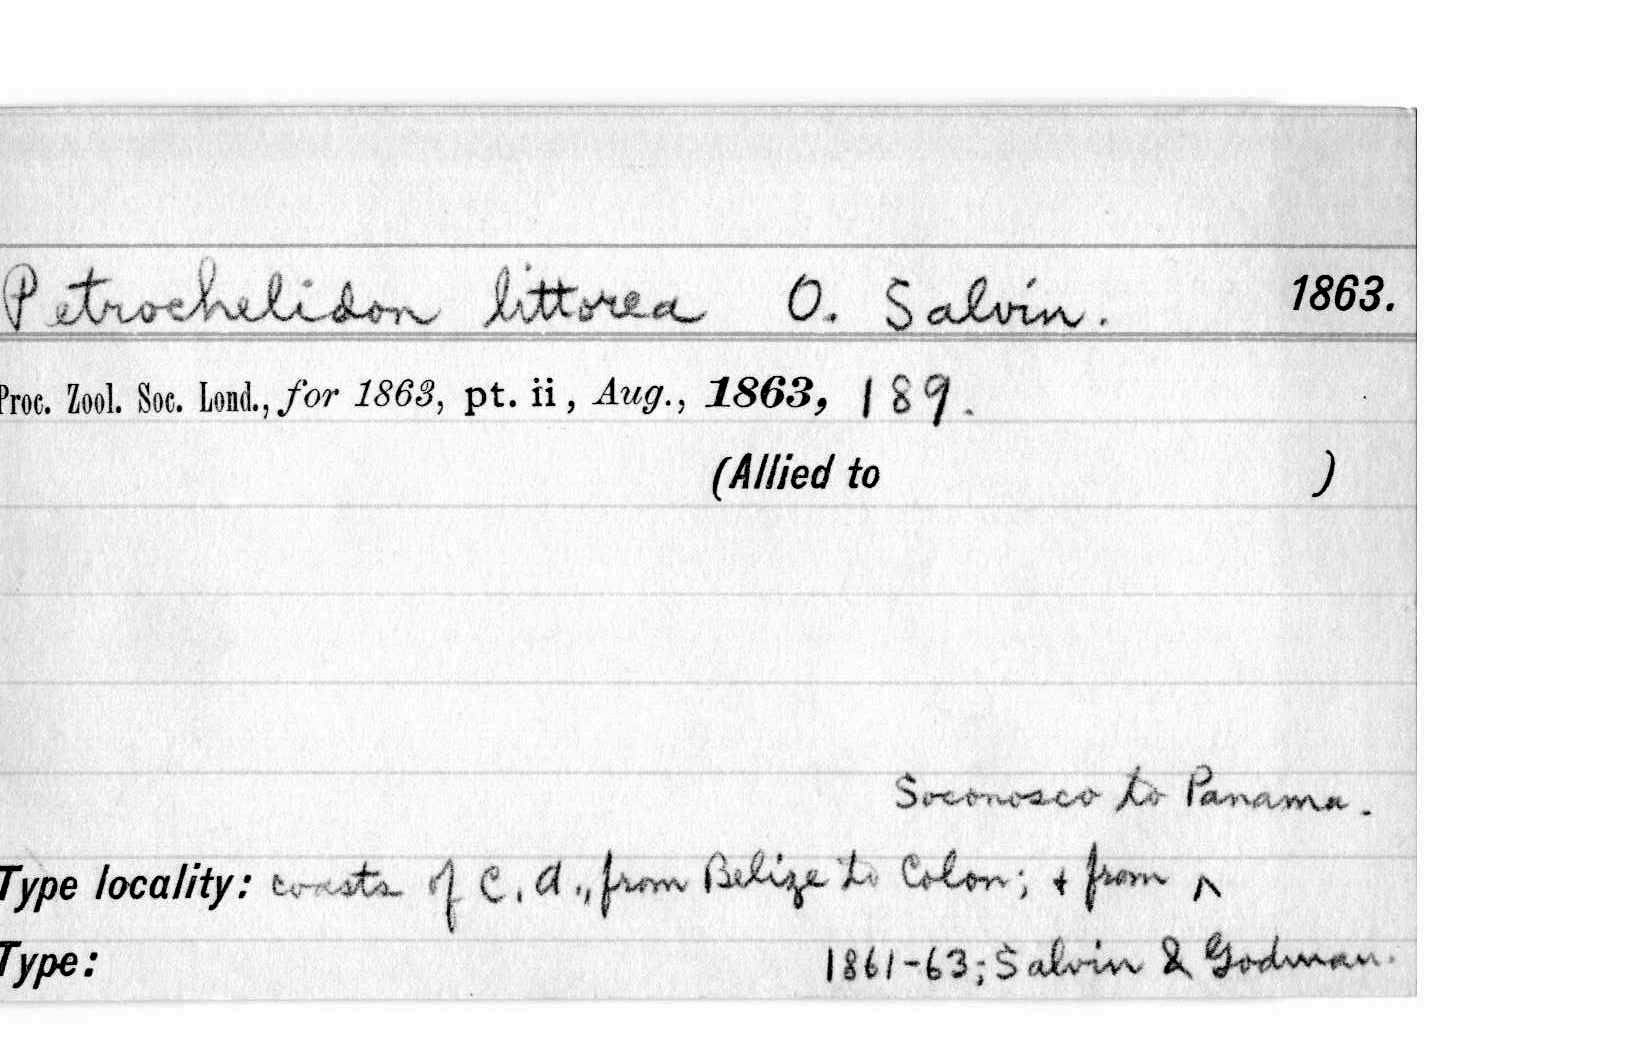 Petrochelidon littorea O. Salvin. 1863.
Proc. Zool. Soc. Lond., for 1863, pt. ii, Aug., 1863, 189.
(Allied to )
Soconosco to Panama.
Type locality: coasts of C. A., from Belize to Colon; + from ^
Type: 1861-63; Salvin & Godman.